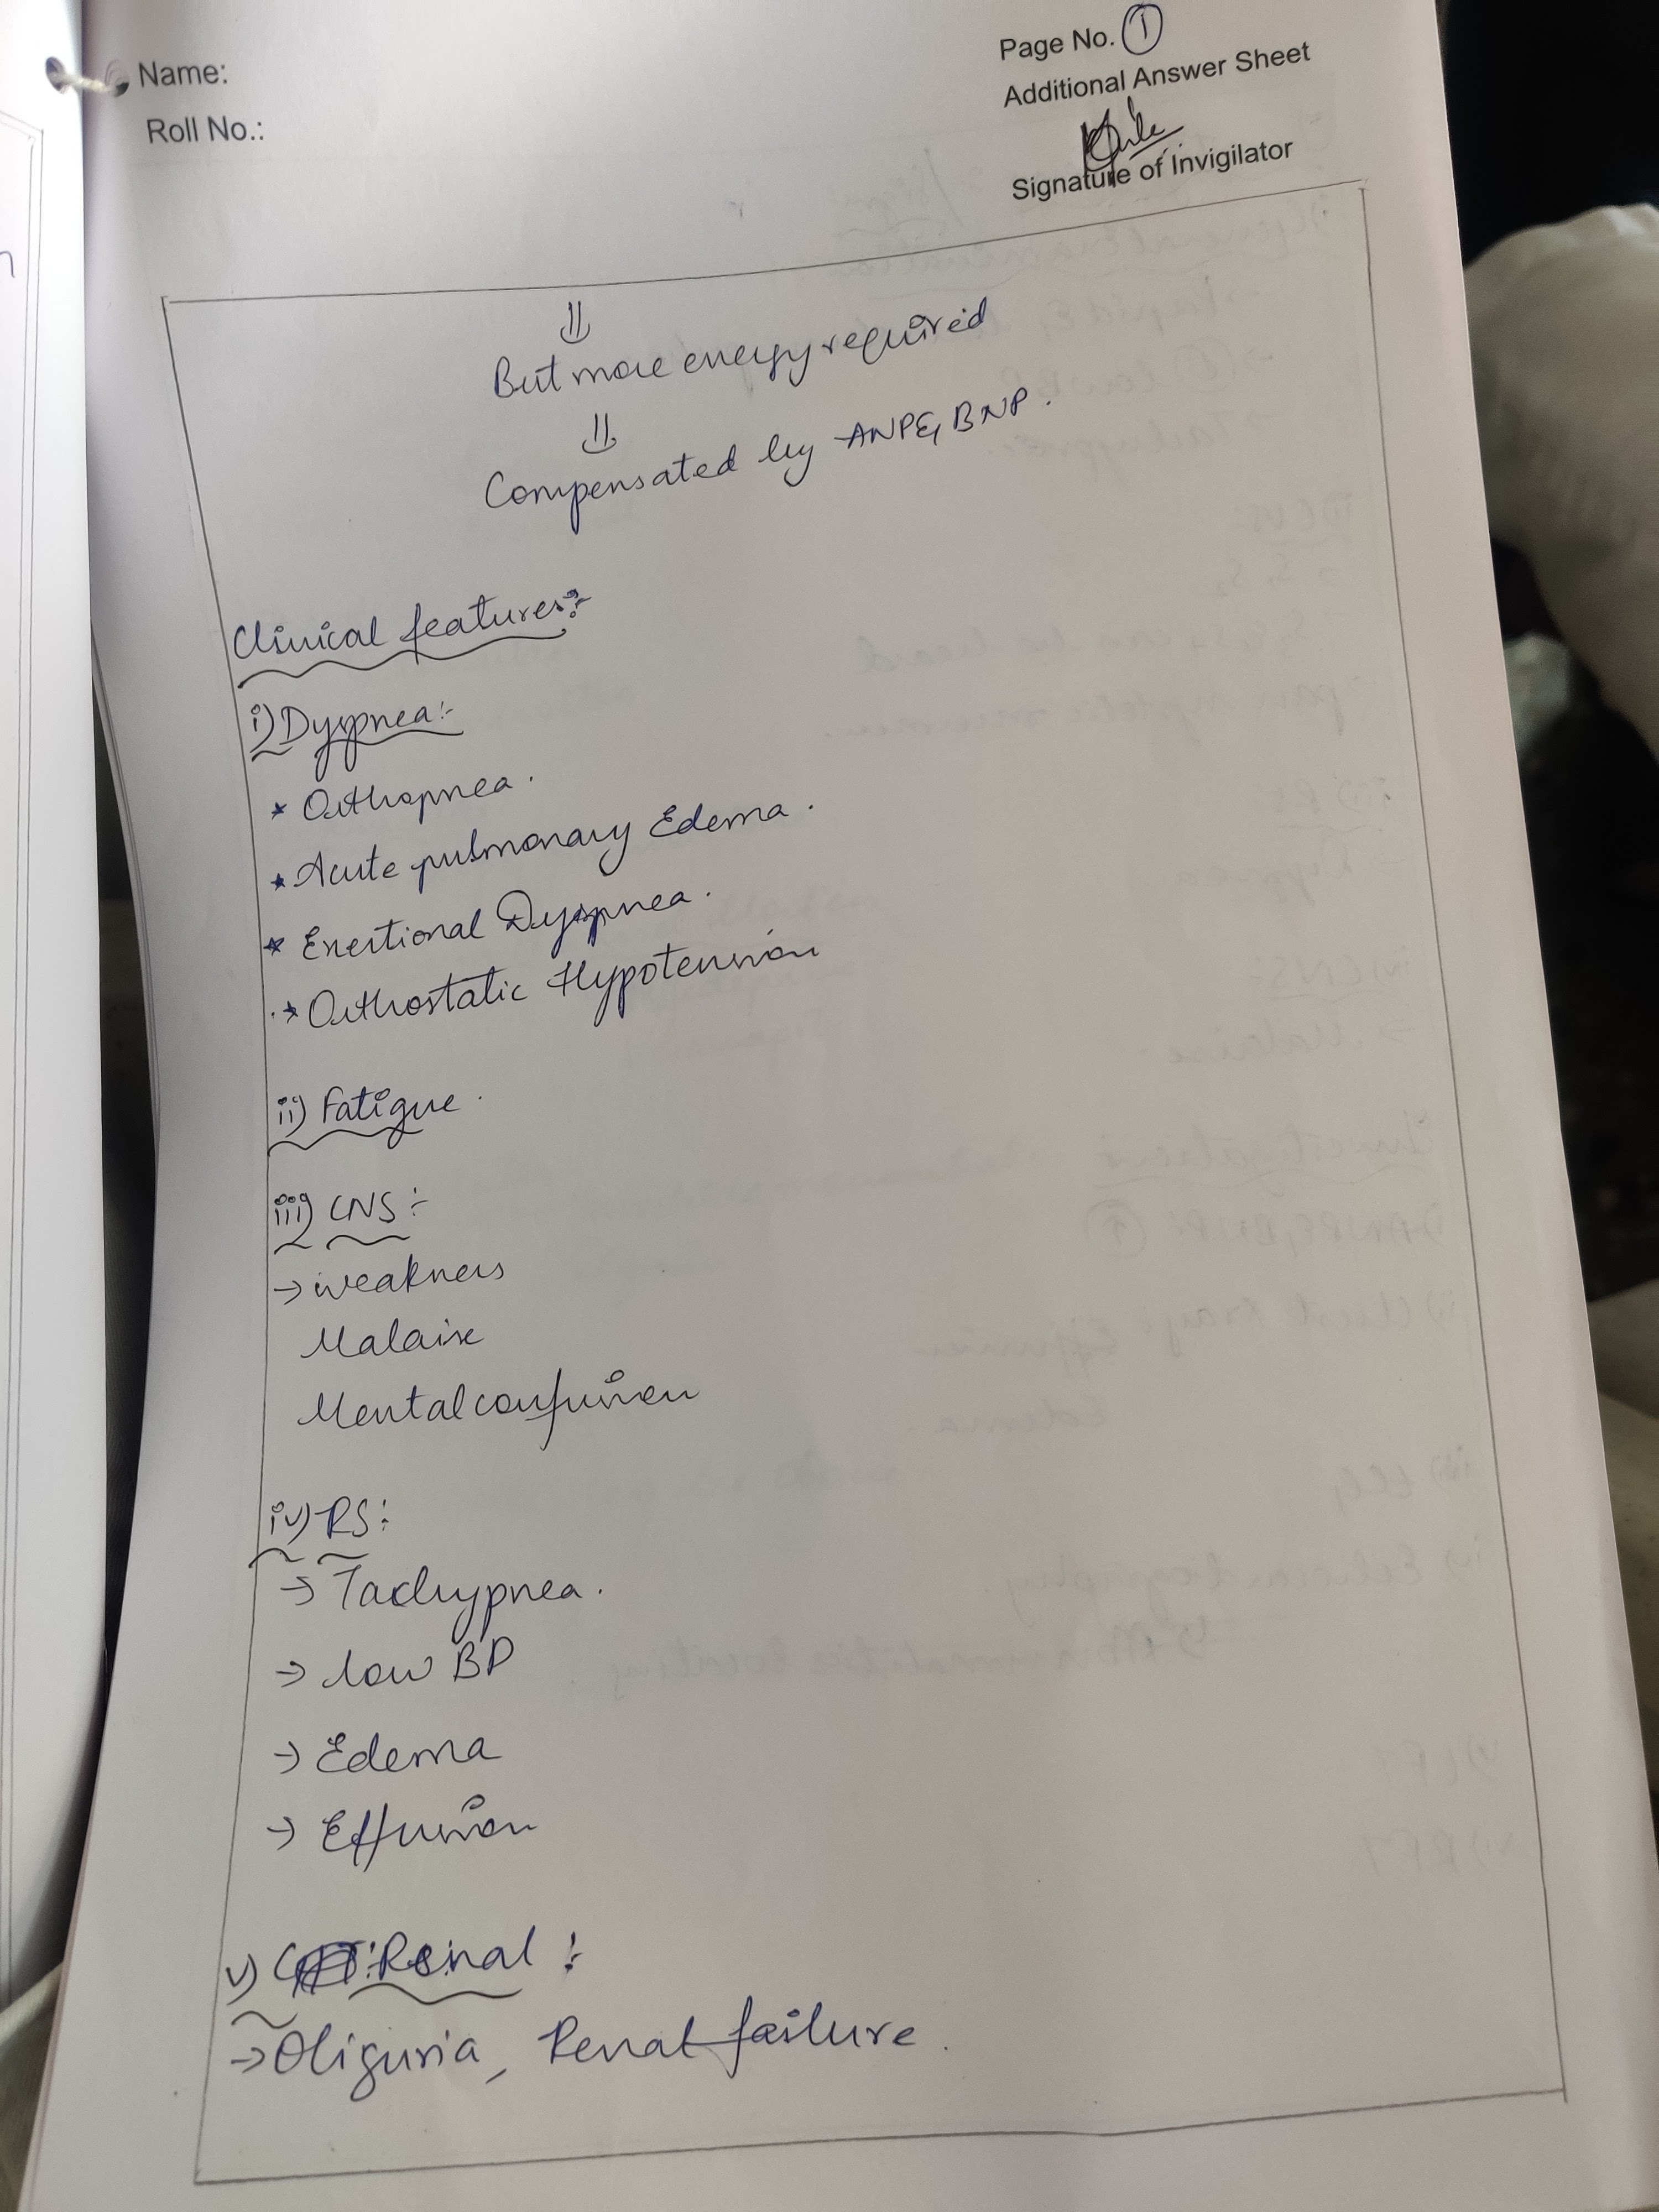 Name:
Roll No.:
Page No. 1
Additional Answer Sheet
Signature of Invigilator
⇓
But more energy required
⇓
Compensated by ANP & BNP.
Clinical features:-
i) Dyspnea:-
* Orthopnea.
* Acute pulmonary Edema.
* Exertional Dyspnea.
* Orthostatic Hypotension
ii) Fatigue.
iii) CNS:-
→ weakness
Malaise
Mental confusion
iv) RS:
→ Tachypnea.
→ low BP
→ Edema
→ Effusion
v) Renal:
→ Oliguria, Renal failure.